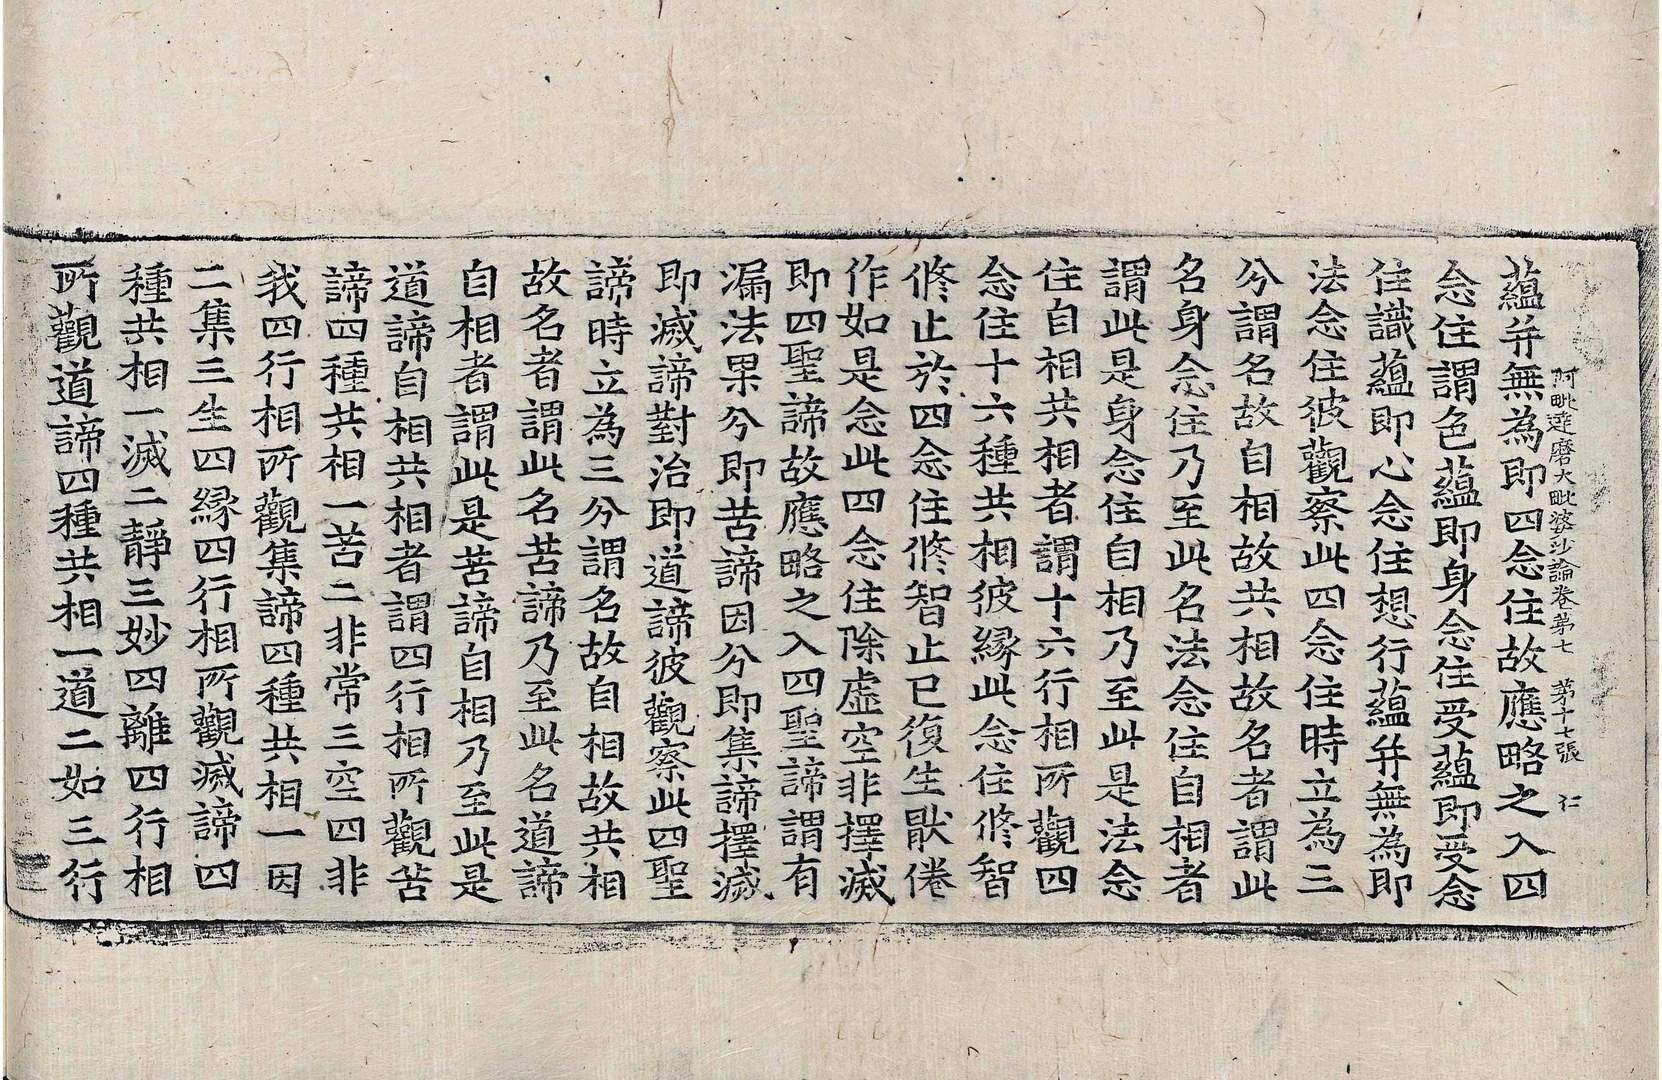 阿毗達磨大毗婆沙論卷第七　第十七張　仁
蘊并無為即四念住故應略之入四
念住謂色蘊即身念住受蘊即受念
住識蘊即心念住想行蘊并無為即
法念住彼觀察此四念住時立為三
分謂名故自相故共相故名者謂此
名身念住乃至此名法念住自相者
謂此是身念住自相乃至此是法念
住自相共相者謂十六行相所觀四
念住十六種共相彼緣此念住修智
修止於四念住修智止已復生猒倦
作如是念此四念住除虛空非擇滅
即四聖諦故應略之入四聖諦謂有
漏法果分即苦諦因分即集諦擇滅
即滅諦對治即道諦彼觀察此四聖
諦時立為三分謂名故自相故共相
故名者謂此名苦諦乃至此名道諦
自相者謂此是苦諦自相乃至此是
道諦自相共相者謂四行相所觀苦
諦四種共相一苦二非常三空四非
我四行相所觀集諦四種共相一因
二集三生四緣四行相所觀滅諦四
種共相一滅二靜三妙四離四行相
所觀道諦四種共相一道二如三行